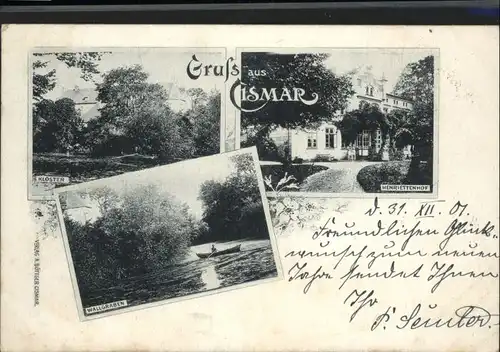 Gruß aus
CISMAR
KLOSTER
HENRIETTENHOF
WALLGRABEN
VERLAG V. BÖTTGER CISMAR.
d. 31. XII. 01.
Freundlichen Glück-
wunsch zum neuen
Jahre sendet Ihnen
Ihr